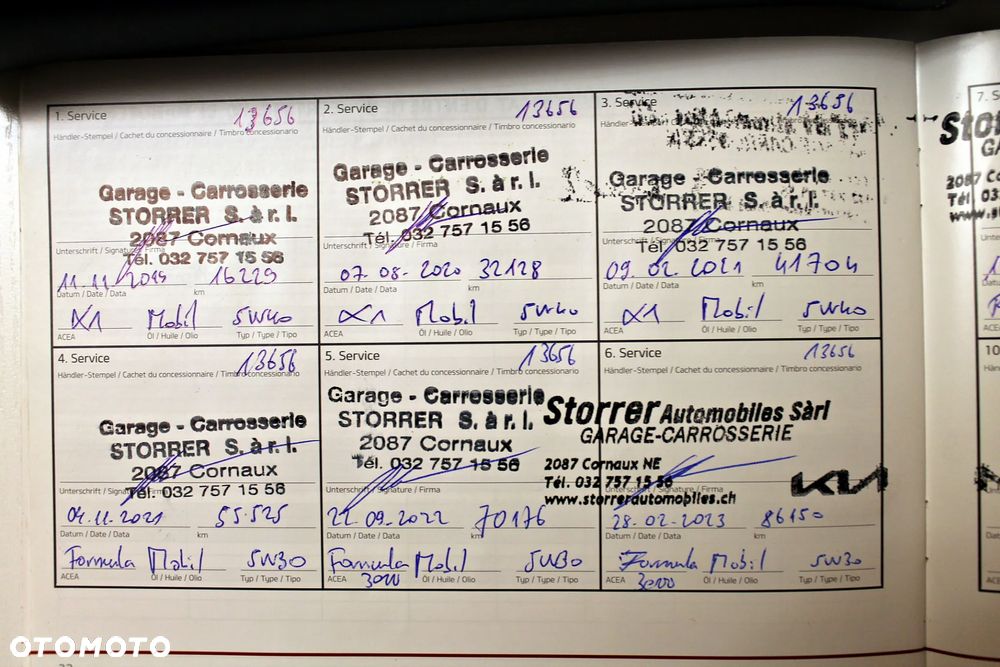 1. Service 13656
Händler-Stempel / Cachet du concessionnaire / Timbro concessionario
Garage - Carrosserie
STORRER S. à r. l.
2087 Cornaux
Unterschrift / Signature / Firma
Tél. 032 757 15 56
11.11.2019 16229
Datum / Date / Data km
X1 Mobil 5W40
ACEA Öl / Huile / Olio Typ / Type / Tipo
2. Service 13656
Händler-Stempel / Cachet du concessionnaire / Timbro concessionario
Garage - Carrosserie
STORRER S. à r. l.
2087 Cornaux
Tél. 032 757 15 56
Unterschrift / Signature / Firma
07.08.2020 32128
Datum / Date / Data km
X1 Mobil 5W40
ACEA Öl / Huile / Olio Typ / Type / Tipo
3. Service 13656
Garage - Carrosserie
STORRER S. à r. l.
2087 Cornaux
Tél. 032 757 15 56
09.02.2021 41704
Datum / Date / Data km
X1 Mobil 5W40
ACEA Öl / Huile / Olio Typ / Type / Tipo
4. Service 13656
Händler-Stempel / Cachet du concessionnaire / Timbro concessionario
Garage - Carrosserie
STORRER S. à r. l.
2087 Cornaux
Unterschrift / Signature / Firma
Tél. 032 757 15 56
04.11.2021 55.525
Datum / Date / Data km
Formula Mobil 5W30
ACEA Öl / Huile / Olio Typ / Type / Tipo
5. Service 13656
Händler-Stempel / Cachet du concessionnaire / Timbro concessionario
Garage - Carrosserie
STORRER S. à r. l.
2087 Cornaux
Tél. 032 757 15 56
Unterschrift / Signature / Firma
22.09.2022 70176
Datum / Date / Data km
Formula Mobil 5W30
ACEA Öl / Huile / Olio Typ / Type / Tipo
3000
6. Service 13656
Händler-Stempel / Cachet du concessionnaire / Timbro concessionario
Storrer Automobiles Sàrl
GARAGE-CARROSSERIE
2087 Cornaux NE
Tél. 032 757 15 56
www.storrerautomobiles.ch
KIA
28-02-2023 86150
Datum / Date / Data km
Formula Mobil 5W30
ACEA Öl / Huile / Olio Typ / Type / Tipo
3000
OTOMOTO